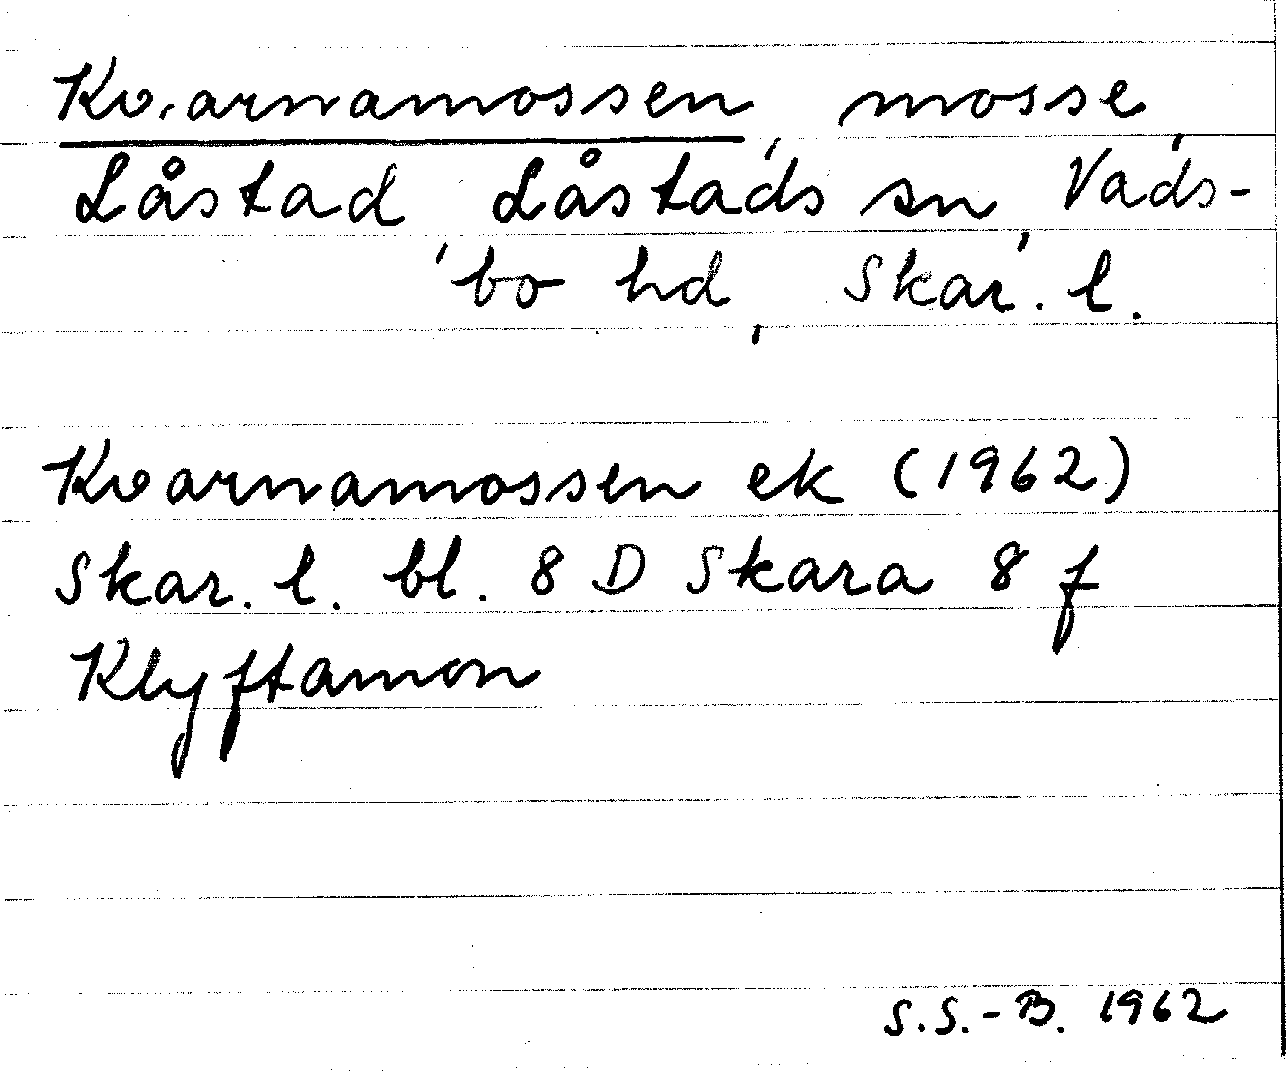 Kvarnamossen, mosse,
Låstad, Låstads sn, Vads-
bo hd, Skar. l.
Kvarnamossen ek (1962)
Skar. l. bl. 8 D Skara 8 f
Klyftamon
S.S.-B. 1962